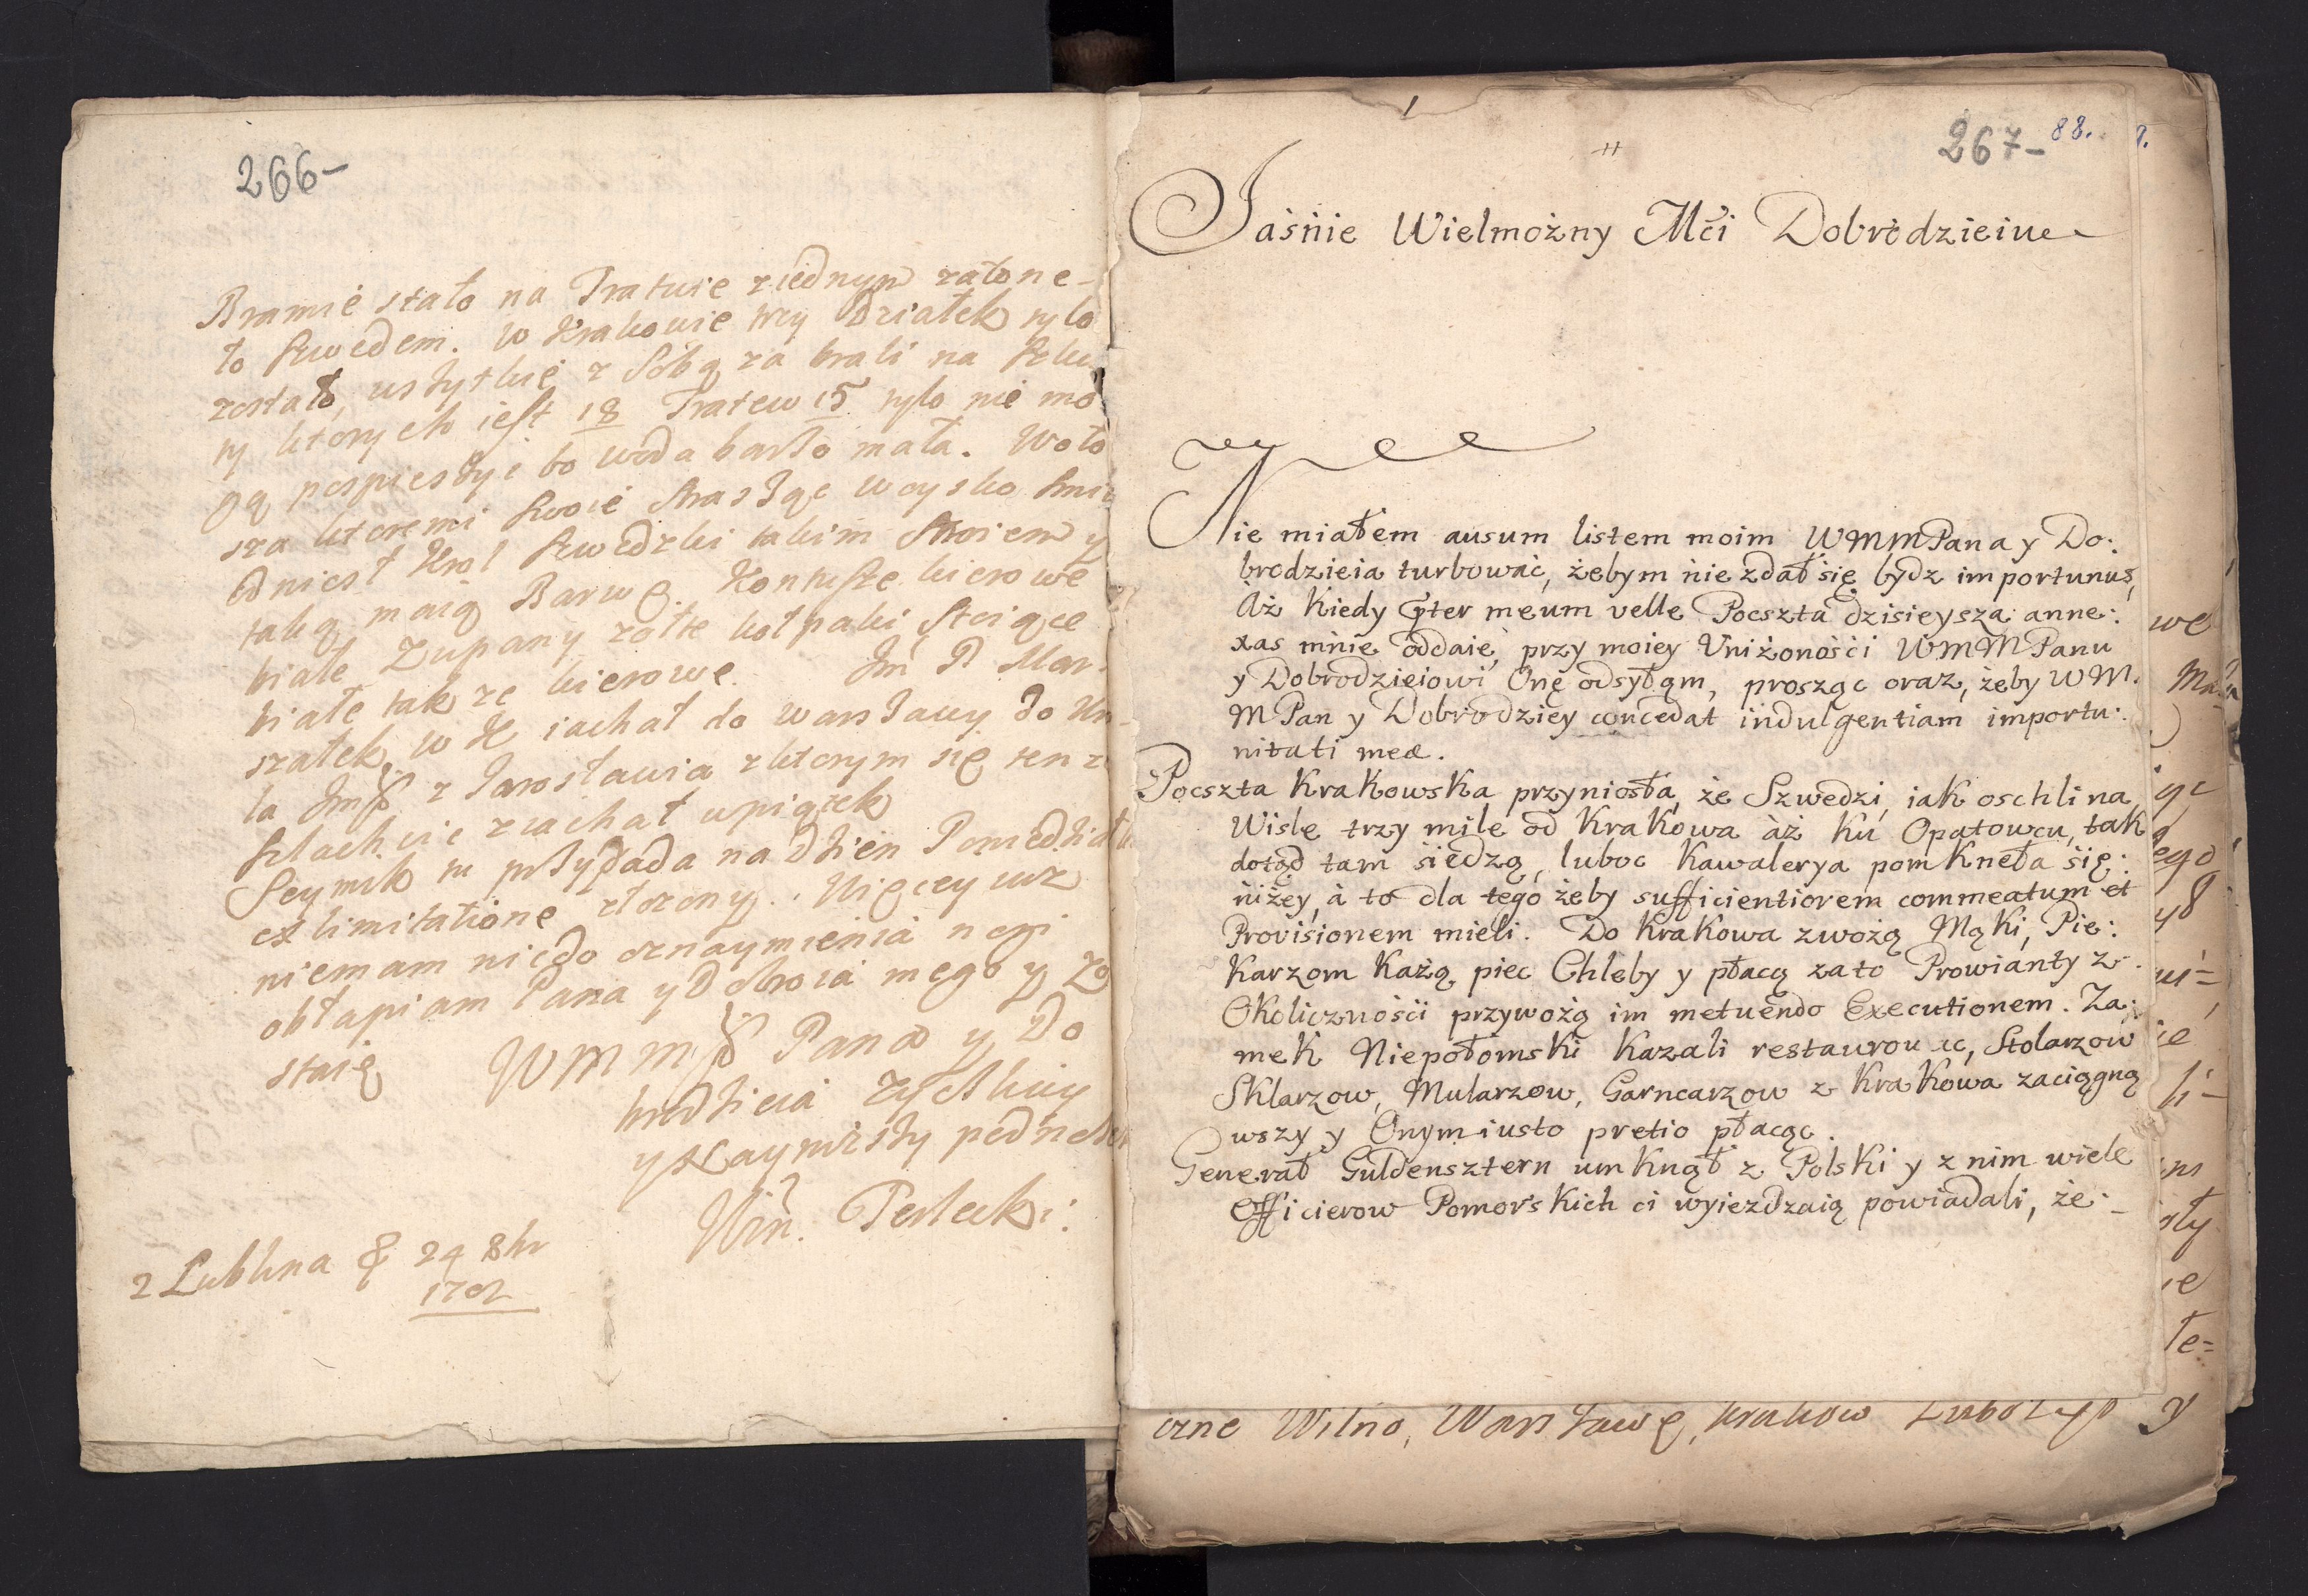 266-
Bramie stało na Tratwie z iednym załone-
to Szwedem. W Krakowie trzy Działek tylo
zostało, wszytkie z Sobą za brali na
ty ktorych iest 18 Tratew 15 tylo nie mo
gą pospieszyc bo woda barzo mała. Woło
sza ktoremi swoie strasząc woysko
Krol Szwedzki takim Stroiem y
taką maią Barwę. Kontusze kierowe
białe Zupany żołte kołpaki
białe tak ze kierowe. Im P Mar-
szałek W K iachał do Warszawy do Kr-
la Im z Jarosławia z ktorym się ten
Szlachcic ziachał w piątek
Seymik tu przypada na Dzien Poniedział
ex limitatione złozony. Więcey iuz
niemam nicdo oznaymienia nogi
obłapiam Pana y Dobroia mego y Zo
staię WMM Pana y Do
brodzieia zyczliwy
y Naynizszy podnoz
Win. Perlecki:
z Lublina d 24 8br
1702
267- 88.
Jaśnie Wielmożny Mći Dobrodzieiu
Nie miałem ausum listem moim WMMPana y Do:
brodzieia turbować, żebym nie zdał się bydz importunus,
Aż kiedy Pter meum velle Poczszta dzisieysza anne:
xas mnie oddaie, przy moiey Uniżonośći WMMPanu
y Dobrodzieiowi One odsyłąm, prosząc oraz, żeby WM.
MPan y Dobrodziey concedat indulgentiam importu:
nitati meæ.
Pocszta Krakowska przyniosła, że Szwedzi, iak oschli na
Wisle trzy mile od Krakowa aż ku Opatowcu, tak
dotąd tam siedzą, luboc Kawalerya pomkneła się:
niżey, à to dla tego żeby sufficientiorem commeatum et
Provisionem mieli. Do Krakowa zwożą Mąki, Pie:
karzom każą piec Chleby y płacą zato Prowianty z
Okolicznośći przywożą im metuendo Executionem. Za:
mek Niepołomski kazali restaurowac, Stolarzow
Sklarzow, Mularzow, Garncarzow z Krakowa zaciągną
wszy y Onym iusto pretio płacąc.
Generał Guldensztern umknął z Polski y z nim wiele
Officierow Pomorskich ci wyiezdzaią powiadali, że:
czne Wilno, Warszawę, Krakow